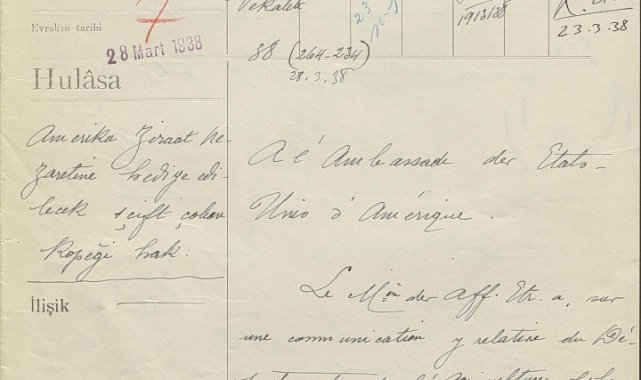 Evrakın tarihi
28 Mart 1938
Vekâlet
23
19/3/38
23.3.38
38 (264-234)
28.3.38
Hulâsa
Amerika Ziraat Ne-
zaretine hediye edi-
lecek 1 çift çoban
köpeği hak.
İlişik
A l'Ambassade des Etats-
Unis d'Amérique.
Le Min des Aff. Etr. a, sur
une communication y relative du Dé-